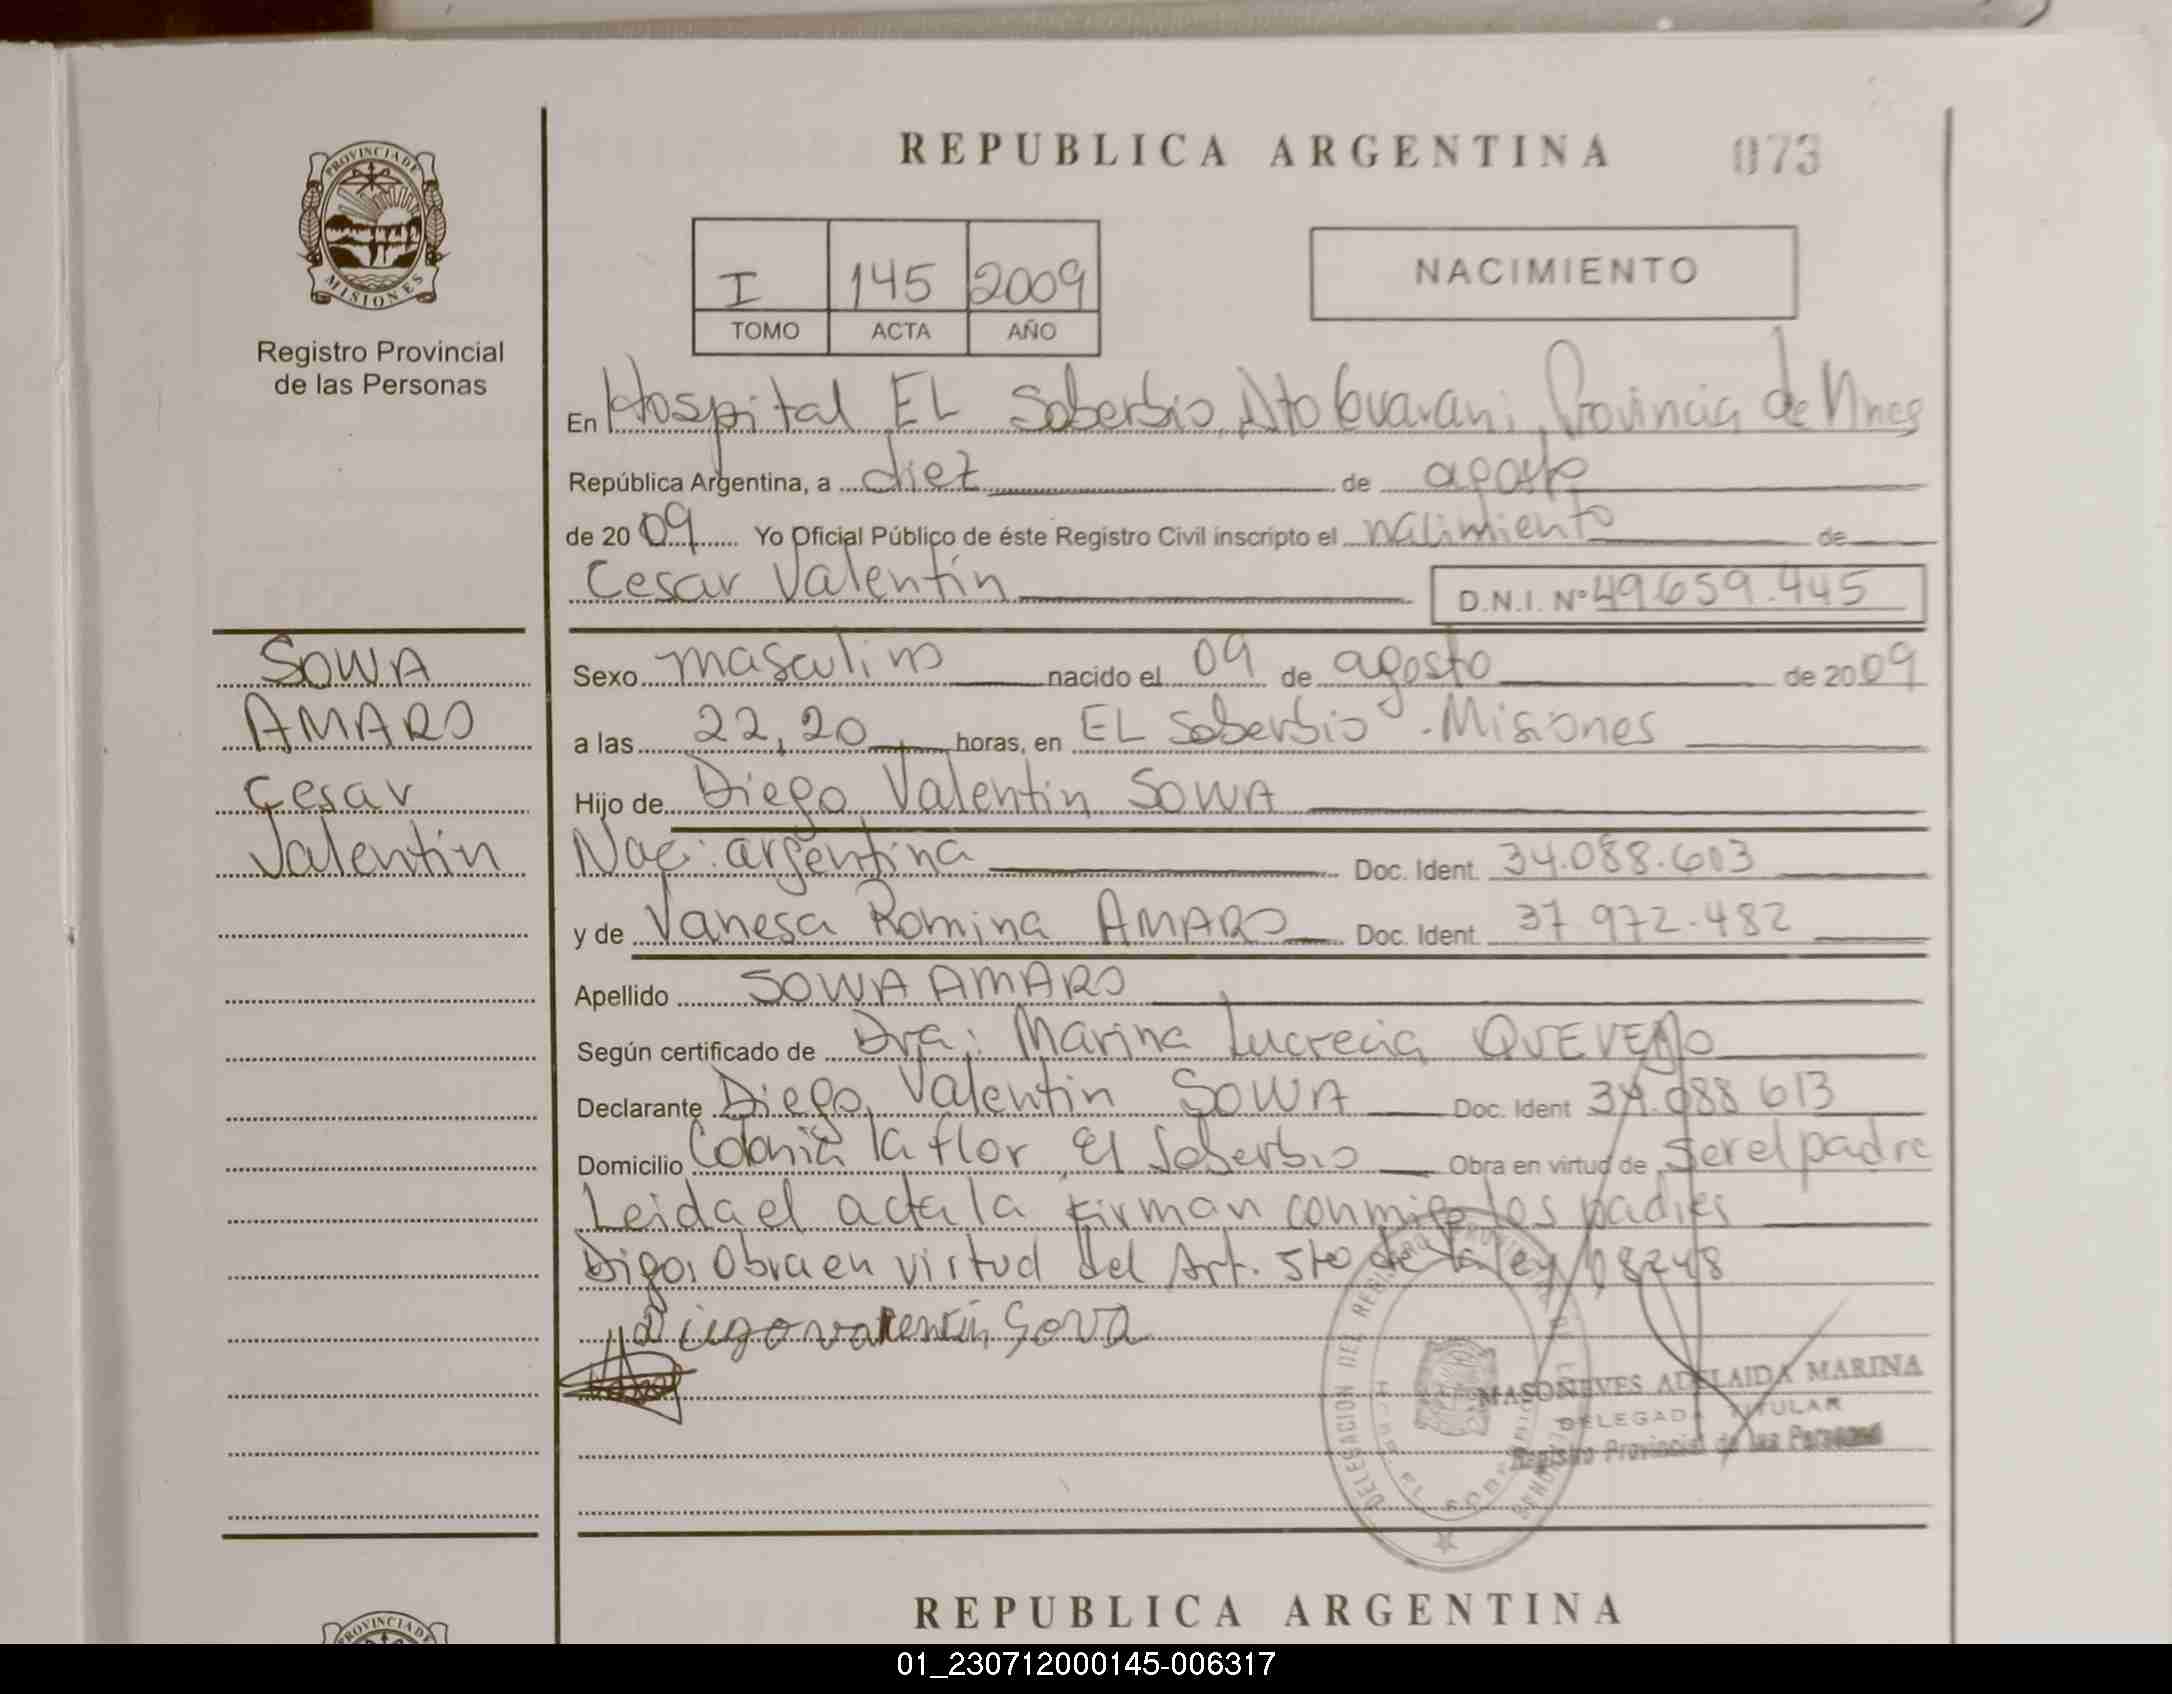 REPUBLICA ARGENTINA
073
PROVINCIA DE
MISIONES
Registro Provincial
de las Personas
I 145 2009
TOMO ACTA AÑO
NACIMIENTO
En Hospital EL Soberbio, Dto Guarani, Provincia de Mnes
República Argentina, a diez de agosto
de 2009 Yo Oficial Público de éste Registro Civil inscripto el nacimiento de
Cesar Valentín D.N.I. Nº 49.659.445
SOWA
AMARO
Cesar
Valentín
Sexo masculino nacido el 09 de agosto de 2009
a las 22,20 horas, en EL Soberbio - Misiones
Hijo de Diego Valentin SOWA
Nac: argentina Doc. Ident. 34.088.613
y de Vanesa Romina AMARO Doc. Ident. 37 972.482
Apellido SOWA AMARO
Según certificado de Dra: Marina Lucrecia QUEVEDO
Declarante Diego Valentin SOWA Doc. Ident 34.088 613
Domicilio Colonia la flor El Soberbio Obra en virtud de ser el padre
Leida el acta la firman conmigo los padres
Digo: Obra en virtud del Art. 5to de la ley 18248
Diego valentin Sova
DELEGACION DEL REGISTRO PROVINCIAL DE
EL SOBERBIO
MISIONES
MASONEVES ADELAIDA MARINA
DELEGADA TITULAR
Registro Provincial de las Personas
REPUBLICA ARGENTINA
PROVINCIA DE
01_230712000145-006317